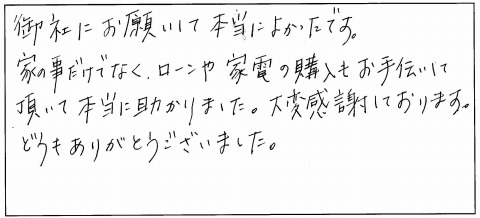 御社にお願いして本当によかったです。
家の事だけでなく、ローンや家電の購入もお手伝いして
頂いて本当に助かりました。大変感謝しております。
どうもありがとうございました。